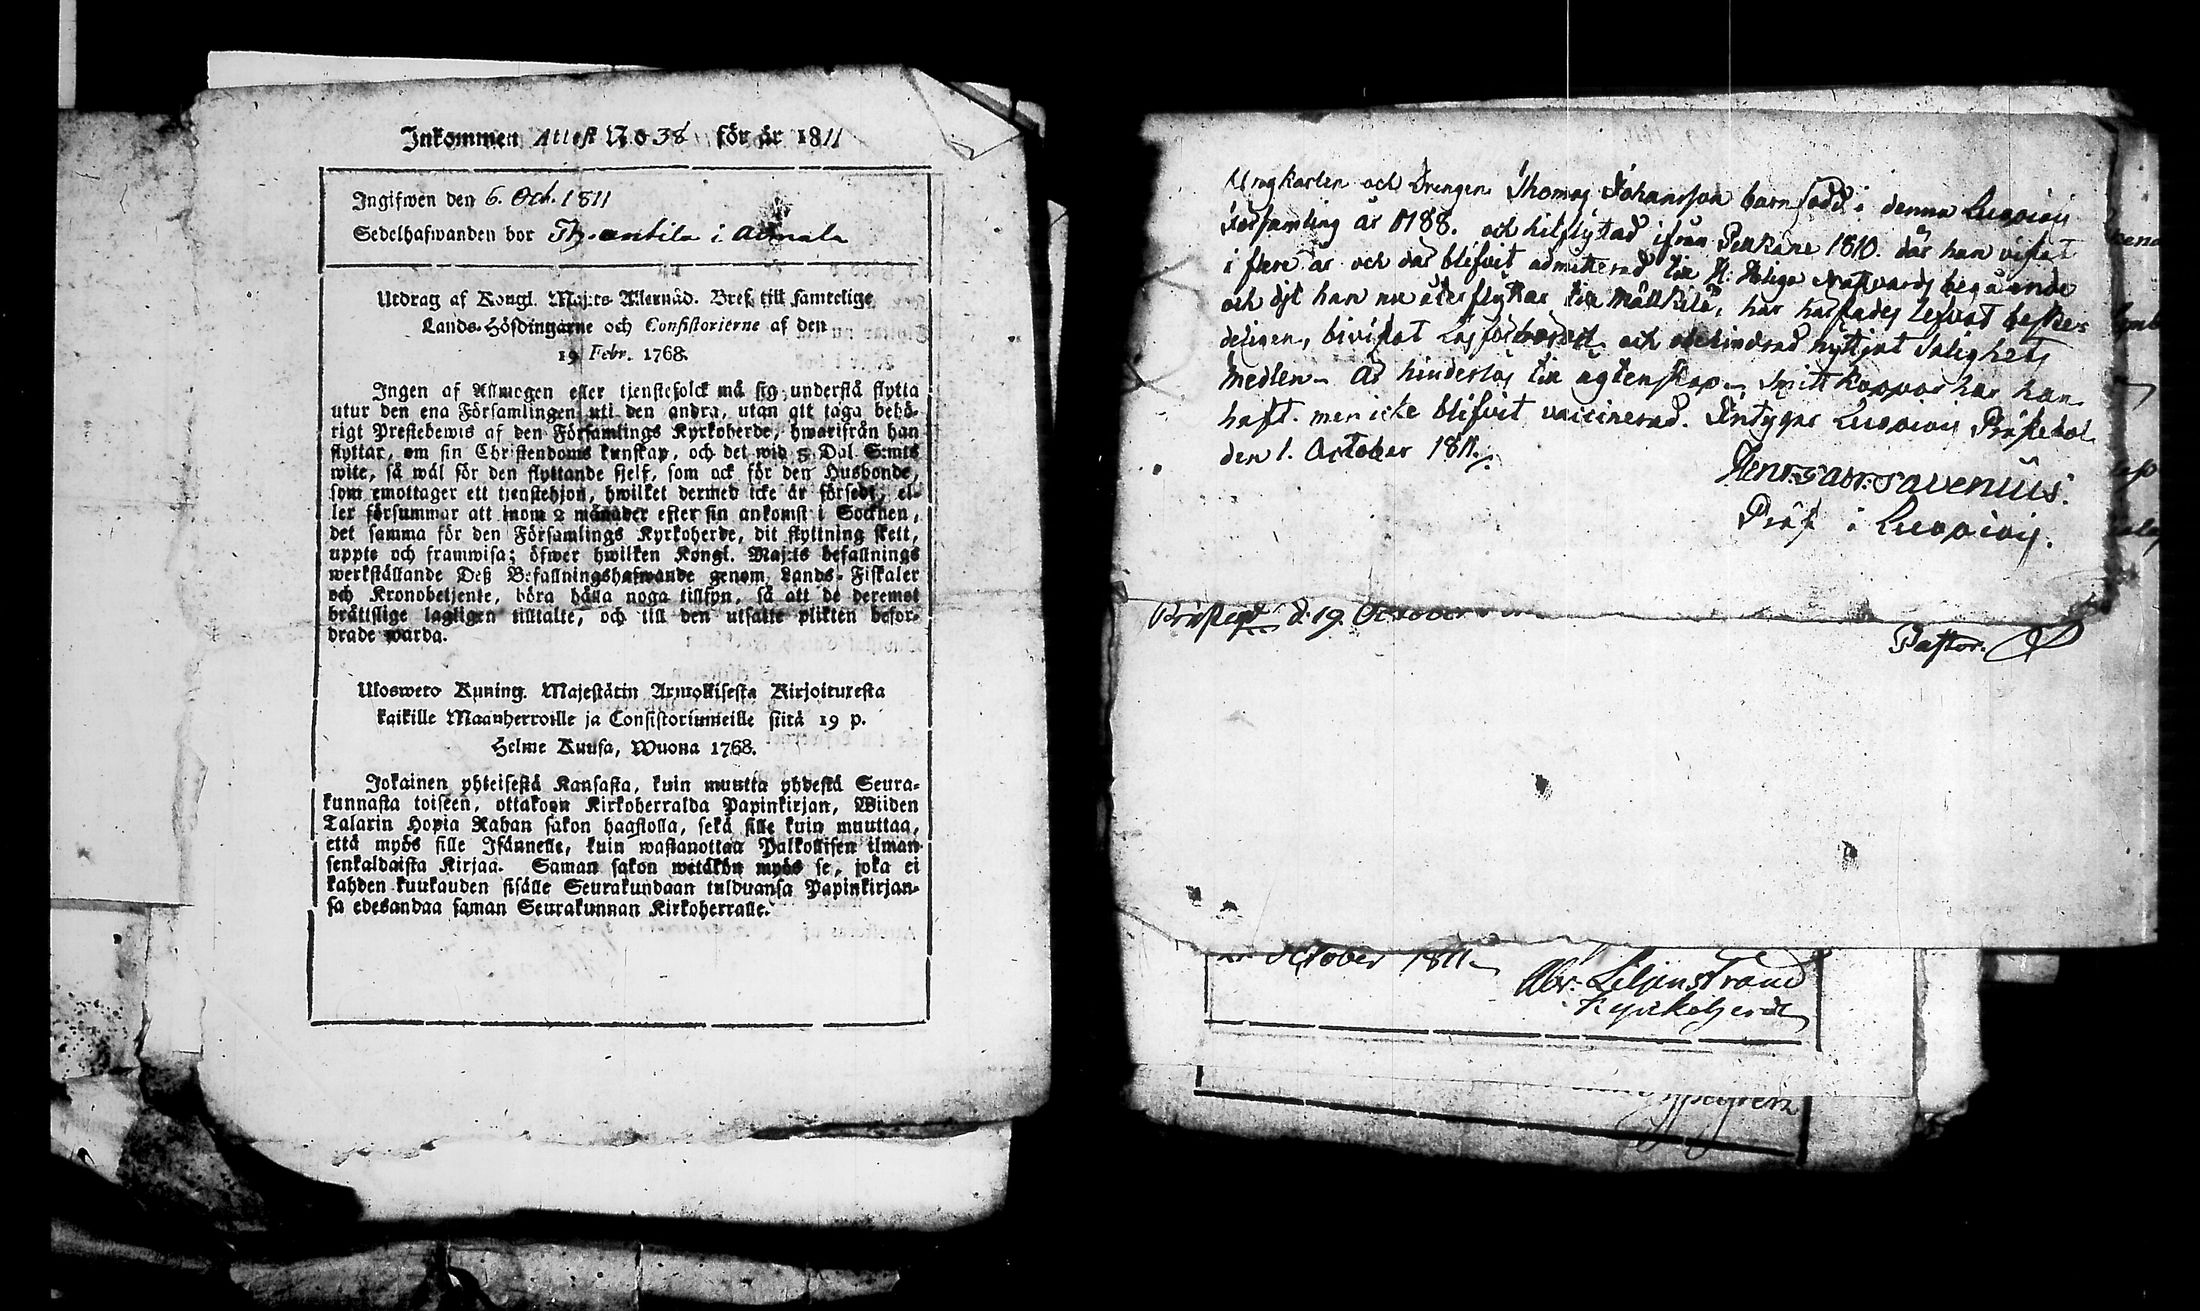 Inkommen Attest No 38 för år 1811
Ingifwen den 6. Oct. 1811
Sedelhafwanden bor i
Utdrag af Kongl. Maj:ts Allernåd. Bref till samtelige
Lands-Höfdingarne och Consistorierne af den
19 Febr. 1768.
Ingen af Allmogen eller tjenstefolck må sig understå flytta
utur den ena Församlingen uti den andra, utan att taga behö-
rigt Prestebewis af den Församlings Kyrkoherde, hwarifrån han
flyttar, om sin Christendoms kunskap, och det wid 5 Dal. S:mts
wite, så wäl för den flyttande sjelf, som ock för den Husbonde,
som emottager ett tjenstehjon, hwilket dermed icke är försedt, el-
ler försummar att inom 2 månader efter sin ankomst i Socknen,
det samma för den Församlings Kyrkoherde, dit flyttning skett,
uppte och framwisa; öfwer hwilken Kongl. Maj:ts befallnings
werkställande Deß Befallningshafwande genom Lands-Fiskaler
och Kronobetjente, böra hålla noga tillsyn, så att de deremot
brättslige lagligen tilltalte, och till den utsatte plikten befor-
drade warda.
Uloswero Kuning. Majestätin Armollisesta Kirjoituxesta
kaikille Maanherroille ja Consistoriumeille siitä 19 p.
Helme Kuusa, Wuona 1768.
Jokainen yhteisestä Kansasta, kuin muutta yhdestä Seura-
kunnasta toiseen, ottakoon Kirkoherralda Papinkirjan, Wiiden
Talarin Hopia Rahan sakon haastolla, sekä sille kuin muuttaa,
että myös sille Isännelle, kuin wastanottaa Palkollisen ilman
senkaldaista Kirjaa. Saman sakon wetäkön myös se, joka ei
kahden kuukauden sisälle Seurakundaan tulduansa Papinkirjan-
sa edesandaa saman Seurakunnan Kirkoherralle.
Ungkarlen och Drengen Thomas Johansson barnfödd i denna Luopiois
församling år 1788. och hitflyttad ifrån Pelkäne 1810. där han vistat
i flere år och där blifvit admitterad till H: Heliga Nattvards begående
och dit han nu återflyttar till har härstädes lefvat beske-
deligen, bivistat Läsförhören och obehindrad nyttjat Salighets
medlen. Är hinderlös till ägtenskap. Smittkoppor har han
haft. men icke blifvit vaccinerad. Intygar Luopiois Prästehol
den 1. October 1811.
Henr: Gabr: Savenius.
Präst i Luopiois.
Prästegd d. 19. October
Pastor.
October 1811.
Abr: Liljenstrand
Kyrkoherde